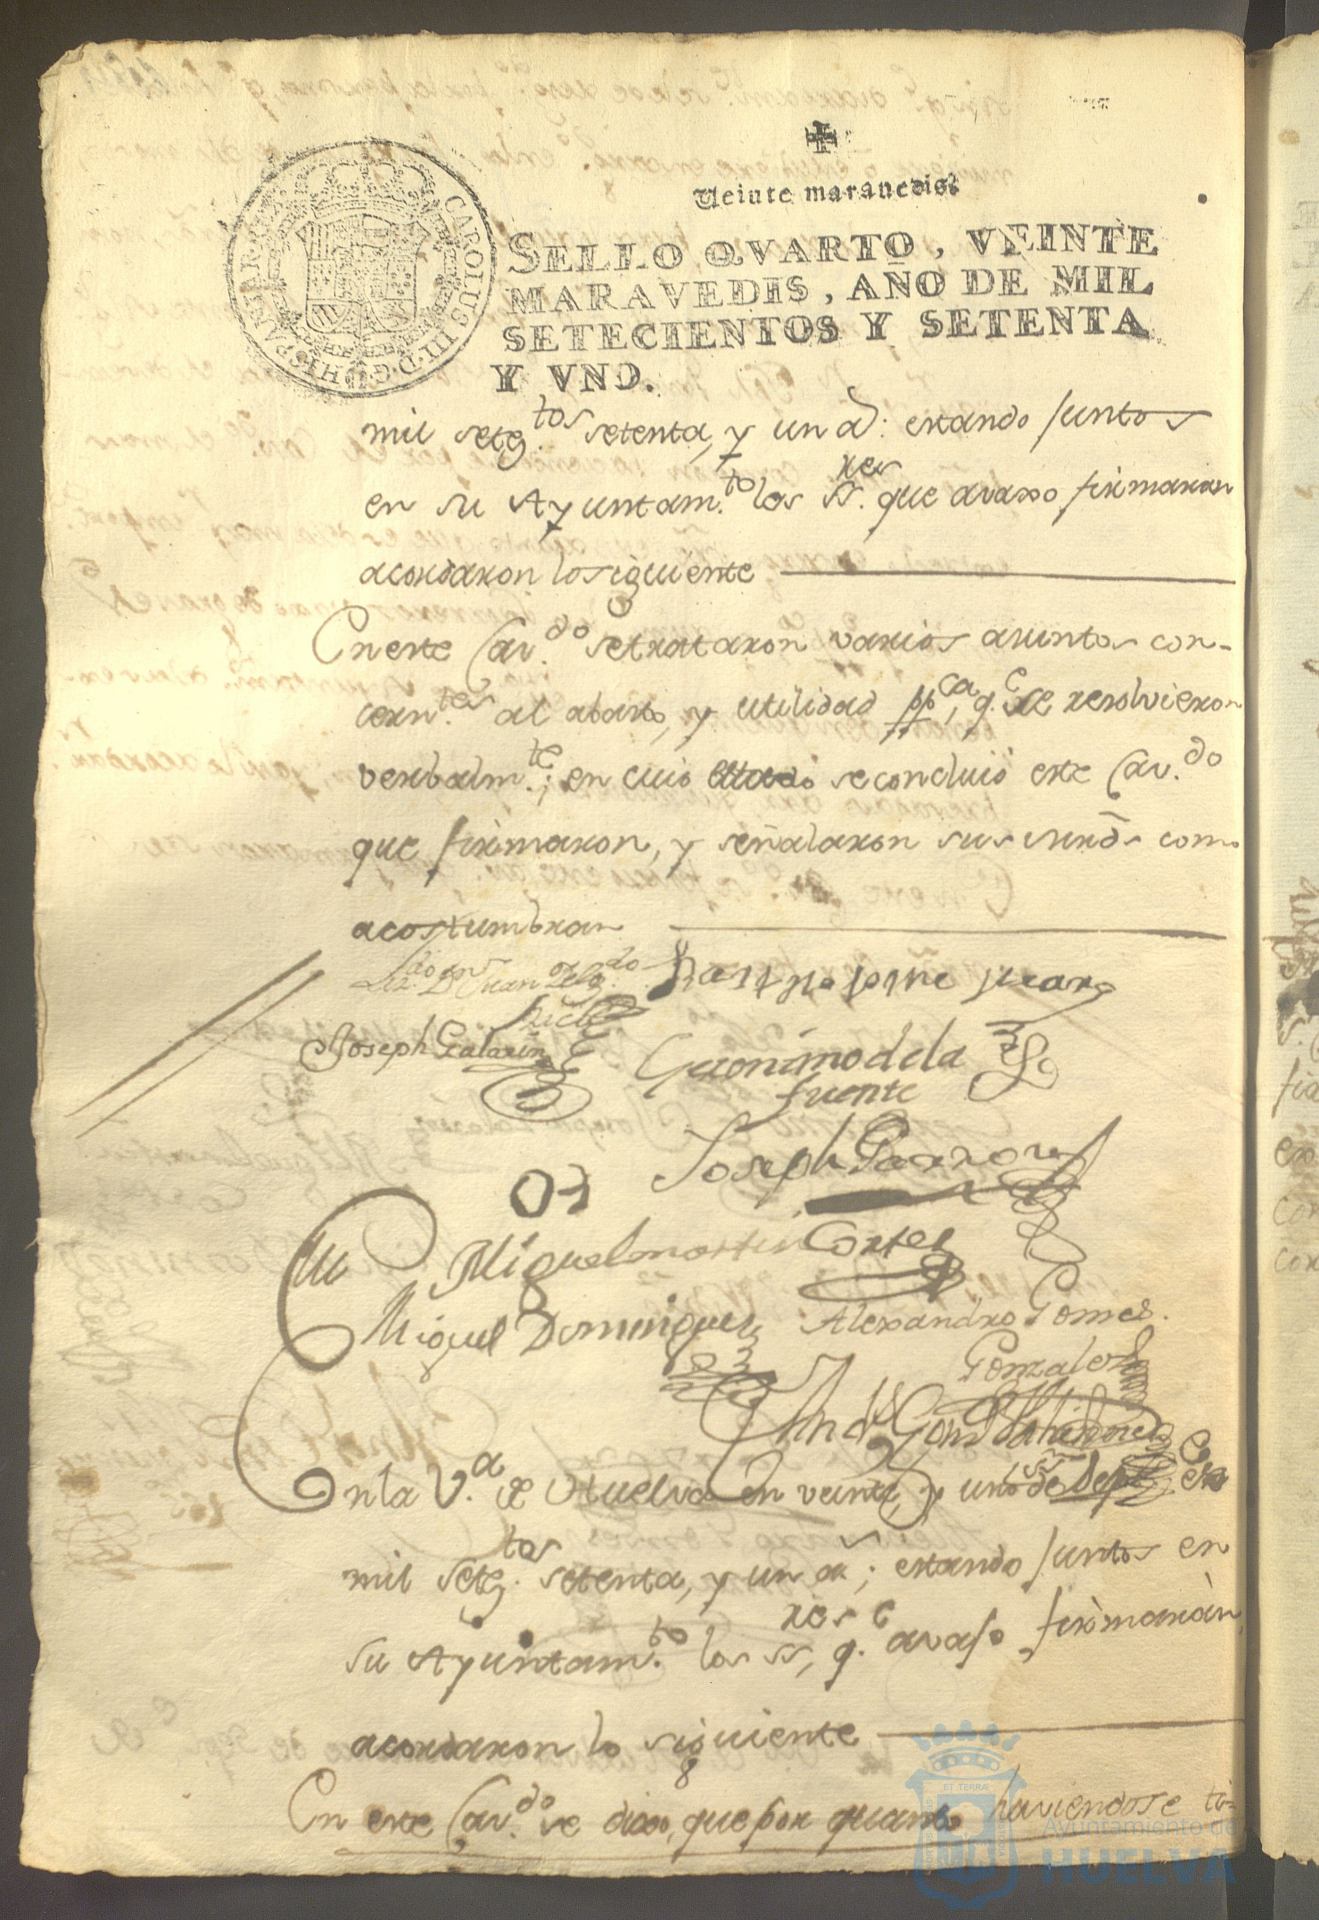 Veinte marauedis.
SELLO QVARTO, VEINTE
MARAVEDIS, AÑO DE MIL
SETECIENTOS Y SETENTA
Y VNO.
CAROLUS III D G HISPANIAR REX
mil seteg.tos setenta, y un a.: estando juntos
en su Ayuntam.to los SS.res que avaxo firmaran
acordaron lo siguiente
En este Cav.do se trataron varios asuntos con-
cern.tes al abasto, y utilidad pp.ca, q.e se resolvieron
verbalm.te; en cuio se concluió este Cav.do
que firmaron, y señalaron sus mrds como
acostumbran
Lz.do Dn Juan
Joseph Galarin
Geronimo de la
fuente
Joseph Garzon
Miguel martin Cortes
Miguel Dominguez
Alexandro Gomes
Gonzalez
En la V.a de Huelva en veinte, y uno de Sep.e de
mil seteg.tos setenta, y un a; estando juntos en
su Ayuntam.to los SS.res, q.e avajo firmarán
acordaron lo siguiente
En este Cav.do se dixo, que por quanto haviendose to-
ET TERRÆ
Ayuntamiento de
HUELVA